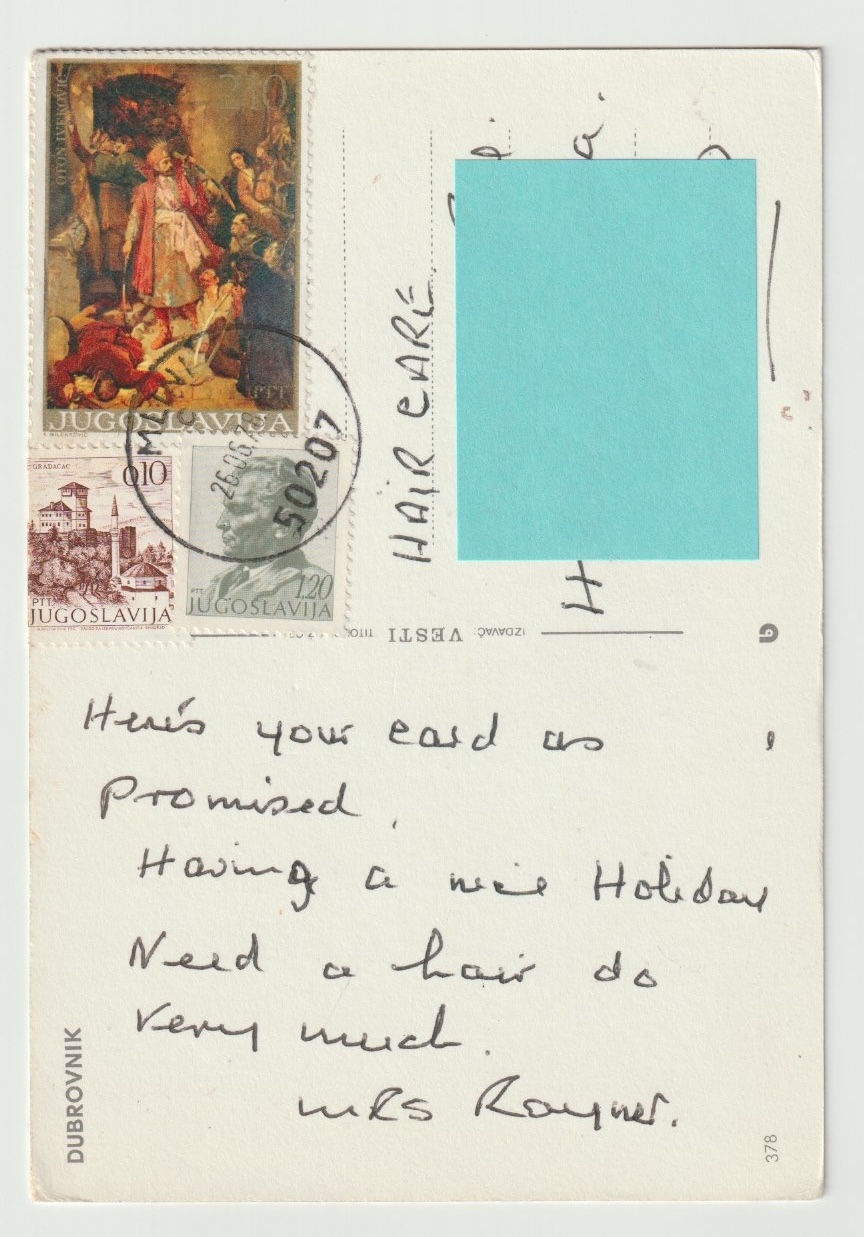 2.10
JUGOSLAVIJA
PTT
GRADAČAC
0.10
PTT
JUGOSLAVIJA
1.20
PTT
JUGOSLAVIJA
MLINI
26.06.78
50207
HAIR CARE
IZDAVAČ: VESTI
Here's your card as
Promised.
Having a nice Holiday
Need a hair do
very much.
MRS Rayner.
DUBROVNIK
378